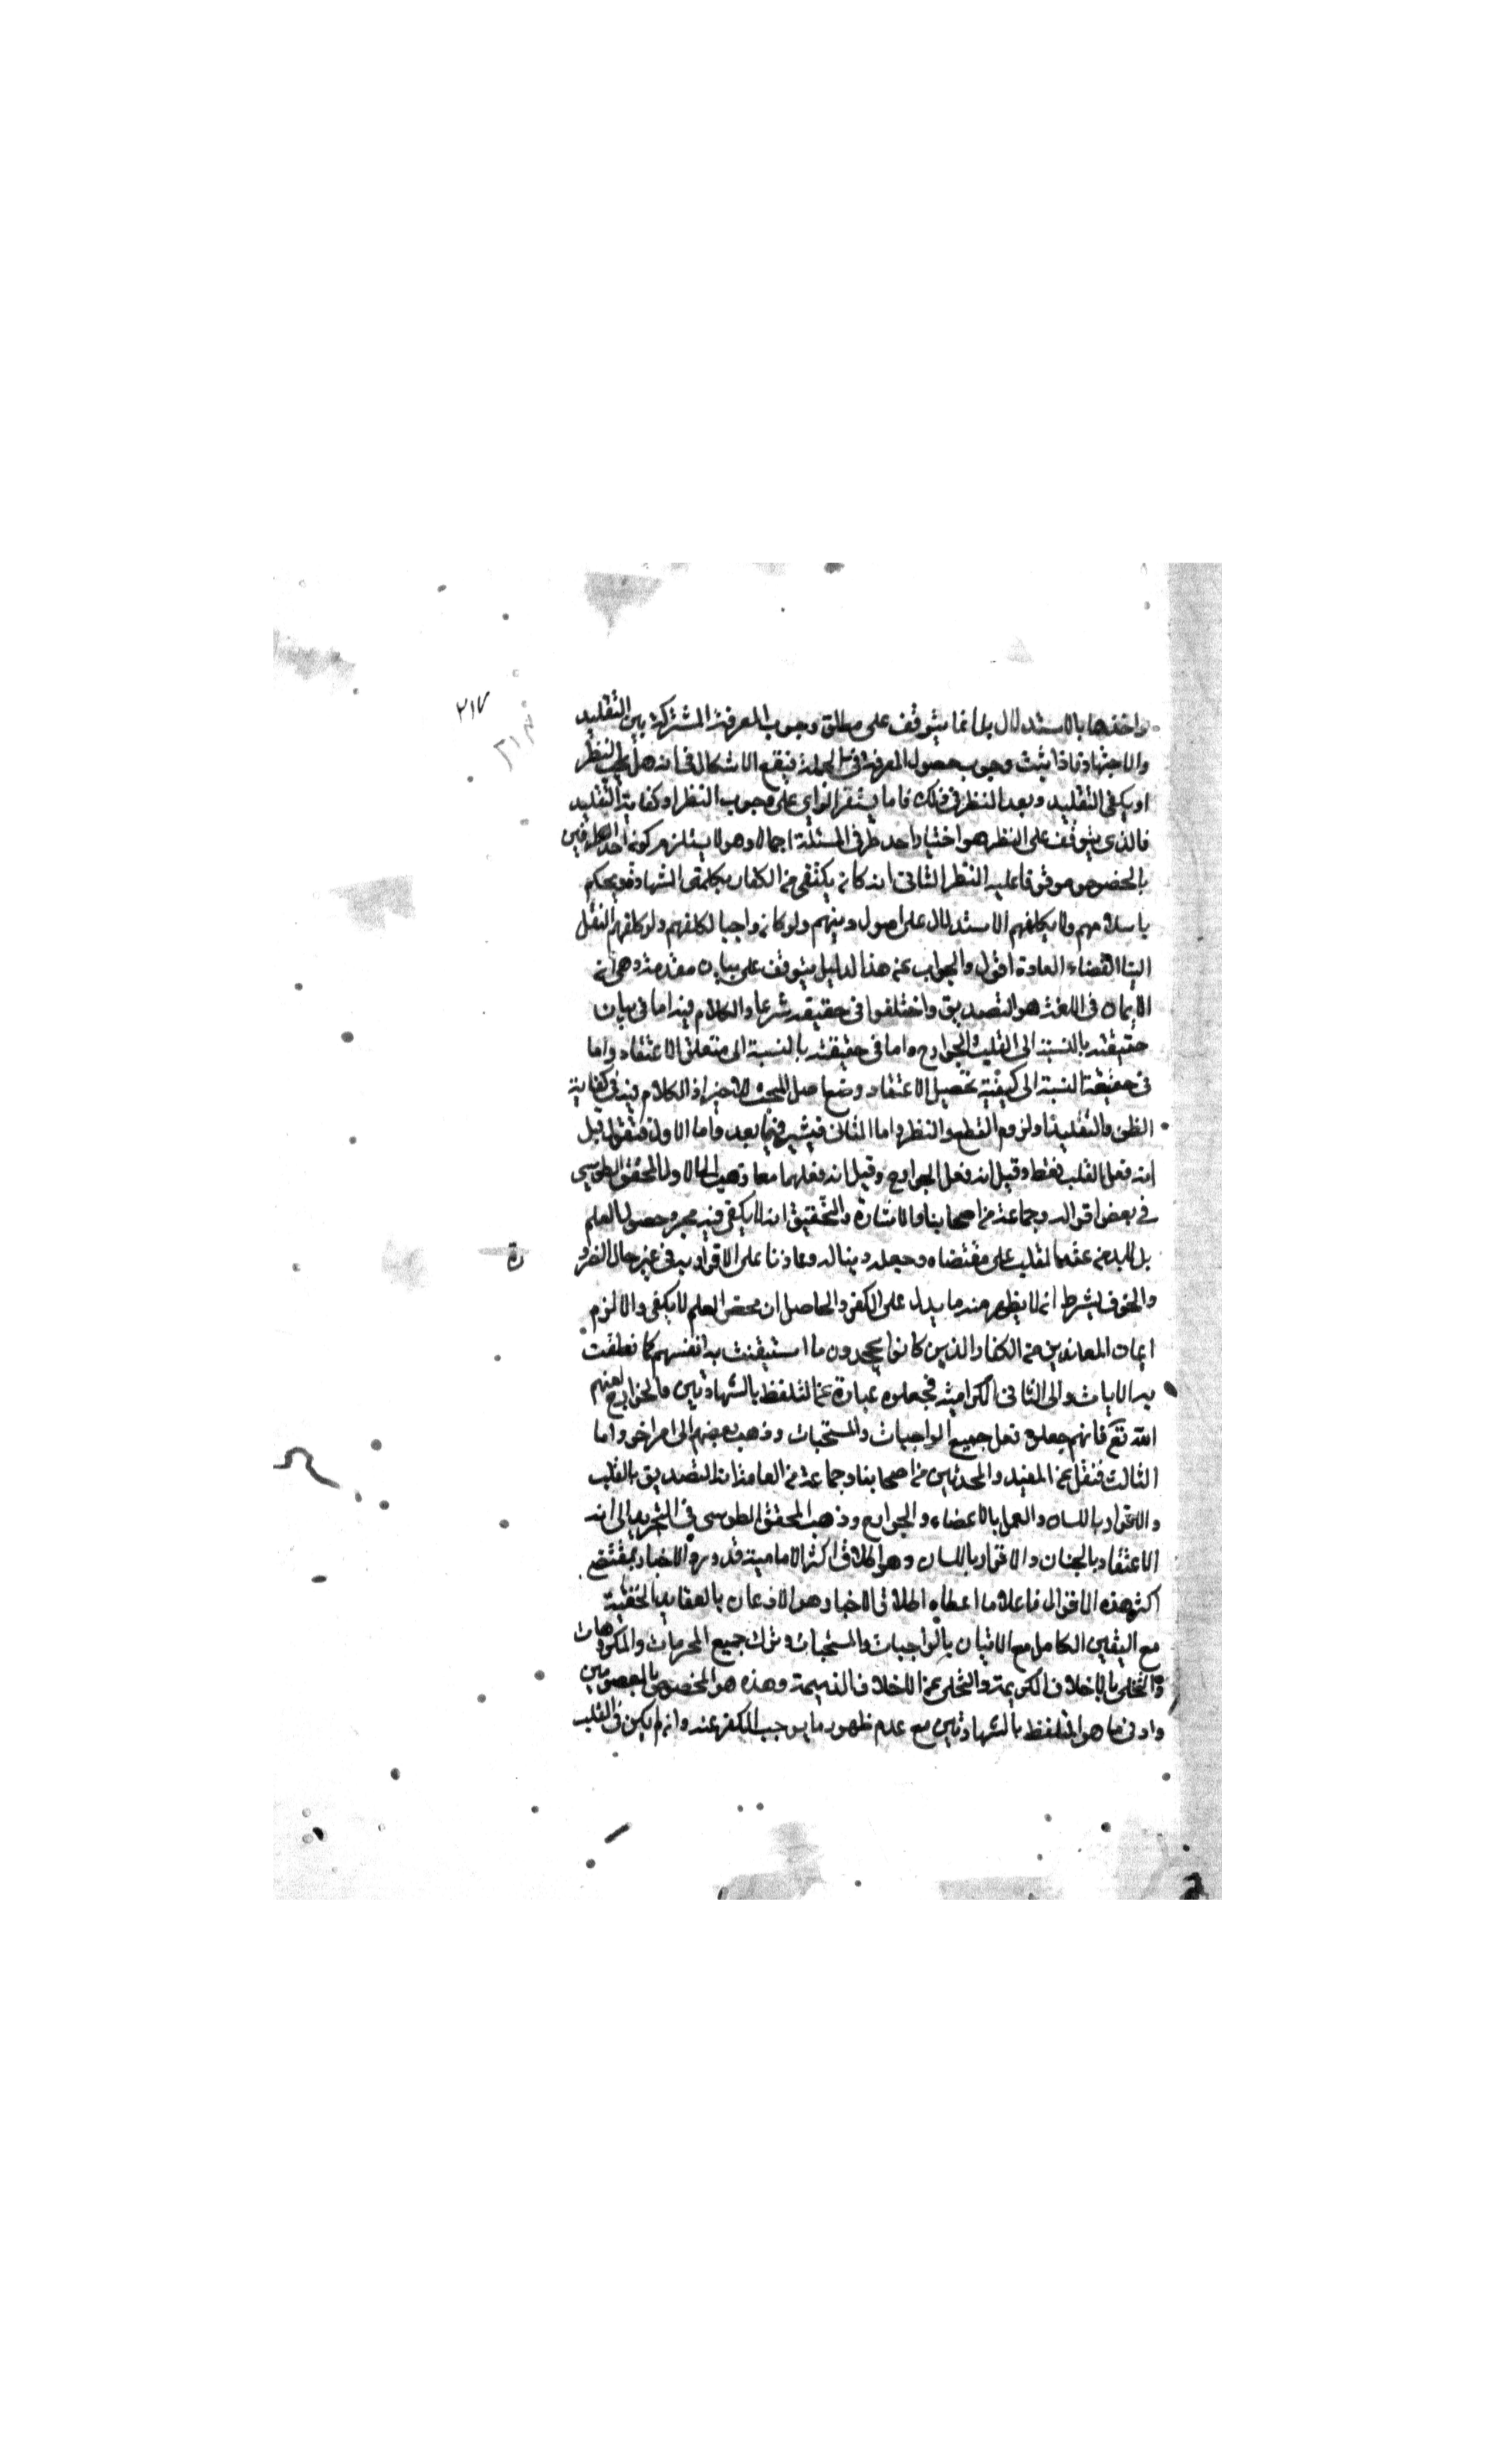 ٢١٧
واخذها بالاستدلال بل انما يتوقف على مطلق وجوب المعرفة المشتركة بين التقليد
والاجتهاد فاذا ثبت وجوب حصول المعرفة في الجملة فيقع الاشكال في انه هل يجب النظر
او يكفي التقليد وبعد النظر في ذلك فاما يستقر الراي على وجوب النظر او كفاية التقليد
فالذي يتوقف على النظر هو اختيار احد طرفي المسئلة اجمالا وهو لا يستلزم كون احد الطرفين
بالخصوص موقوفا عليه النظر الثاني انه كان يكتفي من الكفار بكلمتي الشهادة ويحكم
باسلامهم ولا يكلفهم الاستدلال على اصول دينهم ولو كان واجبا لكلفهم ولو كلفهم لنقل
الينا لقضاء العادة اقول والجواب عن هذا الدليل يتوقف على بيان مقدمة وهي ان
الايمان في اللغة هو التصديق واختلفوا في حقيقته شرعا والكلام فيه اما في بيان
حقيقته بالنسبة الى القلب والجوارح واما في حقيقته بالنسبة الى متعلق الاعتقاد واما
في حقيقته بالنسبة الى كيفية تحصيل الاعتقاد وضعا صل المبحث الاخير اذ الكلام فيه في كفاية
الظن والتقليد او لزوم القطع والنظر واما الثاني فيشير فيما بعد واما الاول فنقول قيل
انه فعل القلب فقط وقيل انه فعل الجوارح وقيل انه فعلهما معا وذهب الى الاول المحقق الطوسي
في بعض اقواله وجماعة من اصحابنا والاشاعرة والتحقيق انه لا يكفي فيه مجرد حصول العلم
بل لابد من عقد القلب على مقتضاه وجعله دينا له وعازنا على الاقرار به في غير حال الضرورة
والخوف بشرط ان لا يظهر منه ما يدل على الكفر والحاصل ان محض العلم لا يكفي والا لزم
ايمان المعاندين من الكفار الذين كانوا يجحدون ما استيقنت به انفسهم كما نطقت
به الايات والى الثاني الكرامية فجعلوه عبارة عن التلفظ بالشهادتين والخوارج لعنهم
الله تع فانهم جعلوه فعل جميع الواجبات والمستحبات وذهب بعضهم الى امر اخر واما
الثالث فنقل عن المفيد والمحدثين من اصحابنا وجماعة من العامة انه التصديق بالقلب
والاقرار باللسان والعمل بالاعضاء والجوارح وذهب المحقق الطوسي في التجريد الى انه
الاعتقاد بالجنان والاقرار باللسان وهو اطلاق اكثر الامامية قد ورد الاخبار بمقتضى
اكثر هذه الاقوال فاعلا ما اعطاه اطلاق الاخبار هو الاذعان بالعقايد الحقية
مع اليقين الكامل مع الاتيان بالواجبات والمستحبات وترك جميع المحرمات والمكروهات
والتحلي بالاخلاق الكريمة والتخلي عن الاخلاق الذميمة وهذه هو المخصوص بالمعصومين
وادنى ما هو التلفظ بالشهادتين مع عدم ظهور ما يوجب الكفر عنه وان لم يكن في القلب